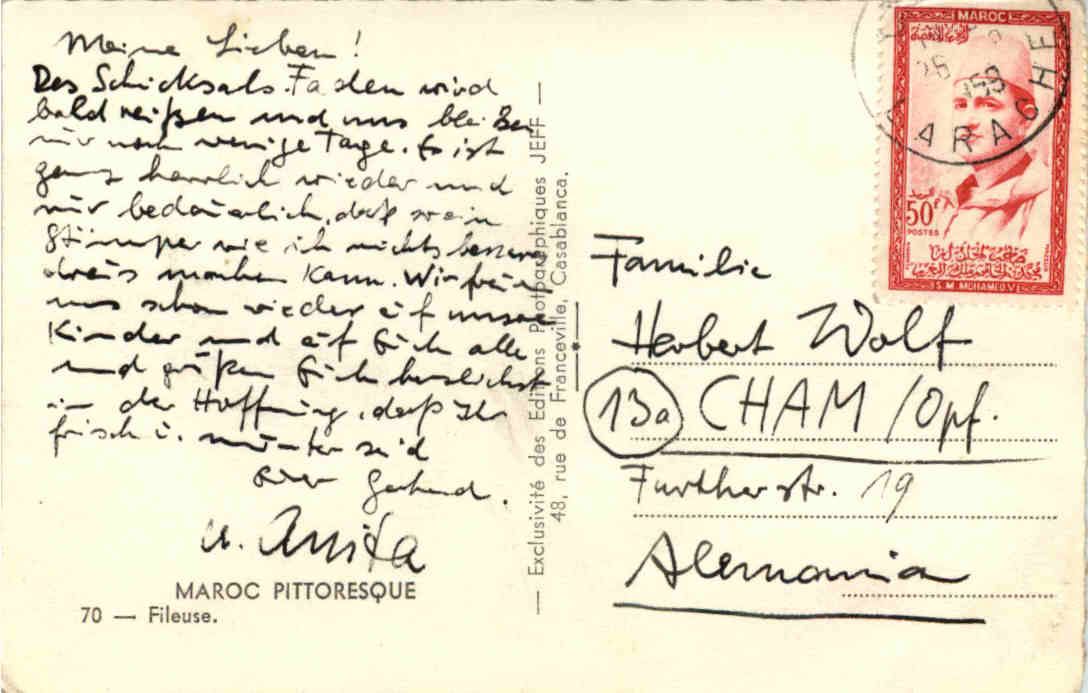 Meine Lieben!
Des Schicksals Faden wird
bald reißen und uns bleiben
nur noch wenige Tage. Es ist
ganz herrlich wieder und
nur bedauerlich, daß so ein
Stümper wie ich nichts besseres
draus machen kann. Wir freuen
uns schon wieder auf unsere
Kinder und auf Euch alle
und grüßen Euch herzlichst
in der Hoffnung, daß Ihr
frisch u. munter seid
Euer Gerhard.
u. Anita
MAROC PITTORESQUE
70 — Fileuse.
— Exclusivité des Editions Photographiques JEFF —
48, rue de Franceville, Casablanca.
MAROC
26
LARACHE
50F
POSTES
S.M. MOHAMED V
Familie
Herbert Wolf
13a CHAM /Opf.
Furtherstr. 19
Alemania